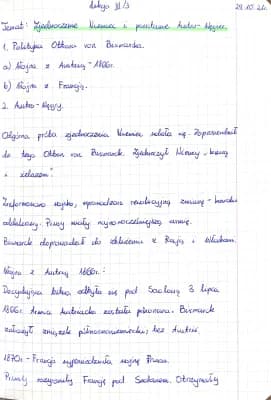 Lekcja
29.10.21r.
Temat: Zjednoczenie Niemiec i powstanie Austro-Węgier.
1. Polityka Ottona von Bismarcka.
a) Wojna z Austrią - 1866r.
b) Wojna z Francją.
2. Austro-Węgry.
próba zjednoczenia Niemiec udała się.
do tego Otton von Bismarck. Zjednoczył Niemcy „krwią
i żelazem”
wojsko, wprowadzono rewolucyjną zmianę -
Prusy miały armię.
Bismarck doprowadził do zbliżenia z Rosją i Włochami.
Wojna z Austrią 1866r.:
Decydująca bitwa odbyła się pod Sadową 3 lipca
1866r. Armia Austriacka została pokonana. Bismarck
założył związek północnoniemiecki, bez Austrii.
1870r - Francja wypowiedziała wojnę Prusom.
Prusacy rozgromili Francję pod Sedanem. Otrzymały